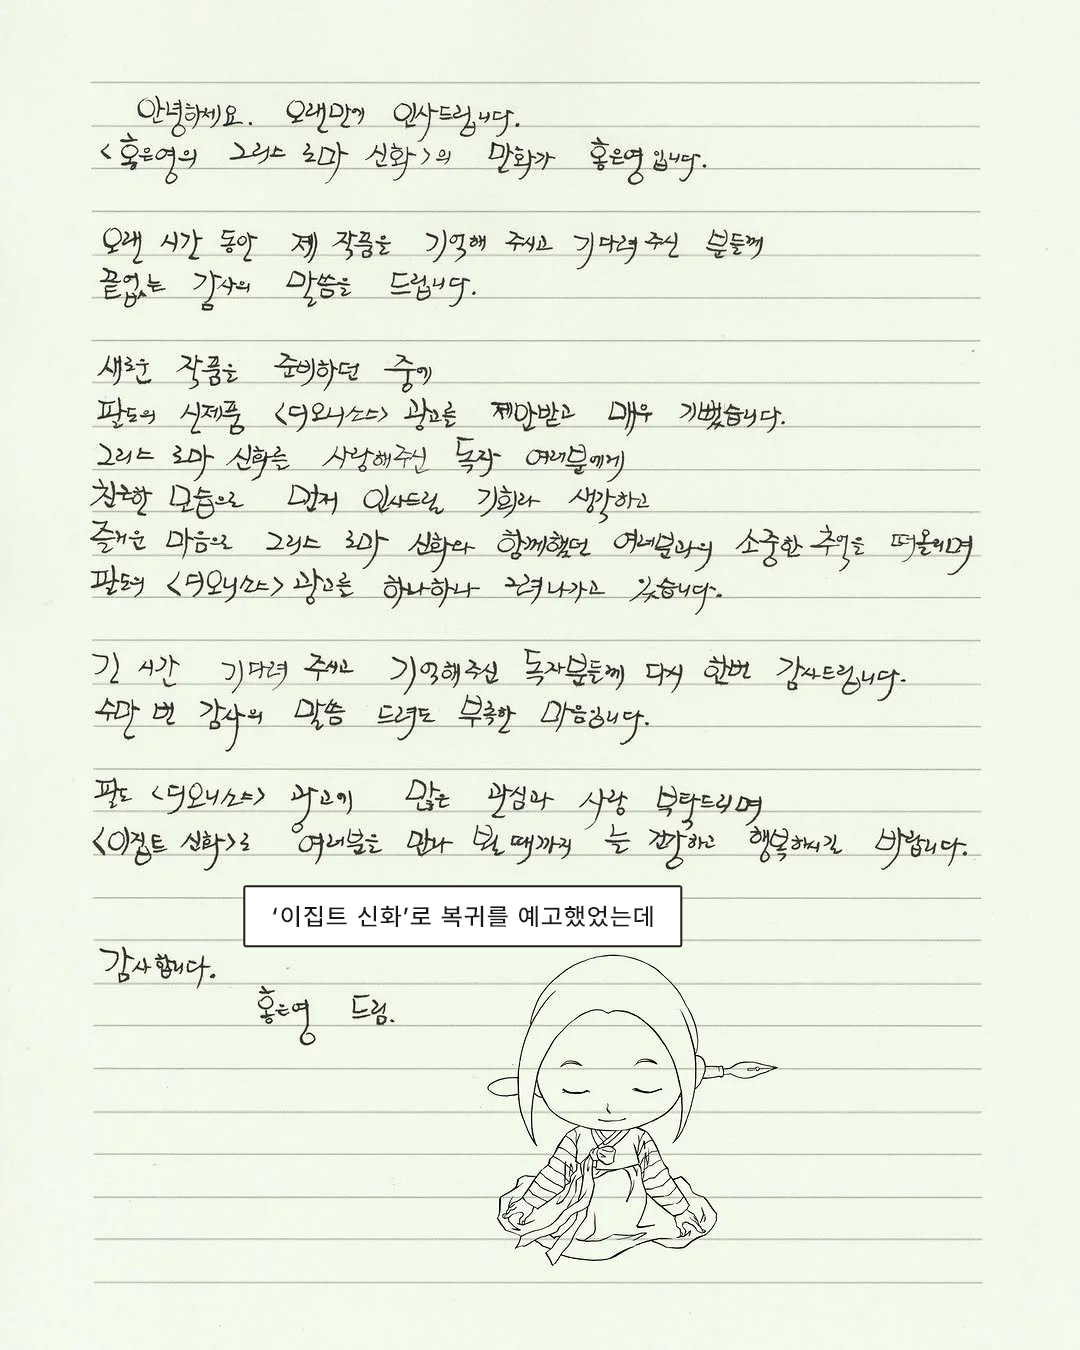 안녕하세요. 오랜만에 인사드립니다.
<홍은영의 그리스 로마 신화>의 만화가 홍은영입니다.
오랜 시간 동안 제 작품을 기억해 주시고 기다려 주신 분들께
끝없는 감사의 말씀을 드립니다.
새로운 작품을 준비하던 중에
팔도의 신제품 <디오니소스> 광고를 제안받고 매우 기뻤습니다.
그리스 로마 신화를 사랑해주신 독자 여러분에게
친근한 모습으로 먼저 인사드릴 기회라 생각하고
즐거운 마음으로 그리스 로마 신화와 함께했던 여러분과의 소중한 추억을 떠올리며
팔도의 <디오니소스> 광고를 하나하나 그려나가고 있습니다.
긴 시간 기다려 주시고 기억해주신 독자분들께 다시 한번 감사드립니다.
수만 번 감사의 말씀 드려도 부족한 마음입니다.
팔도 <디오니소스> 광고에 많은 관심과 사랑 부탁드리며
<이집트 신화>로 여러분을 만나 뵐 때까지 늘 건강하고 행복하시길 바랍니다.
'이집트 신화'로 복귀를 예고했었는데
감사합니다.
홍은영 드림.